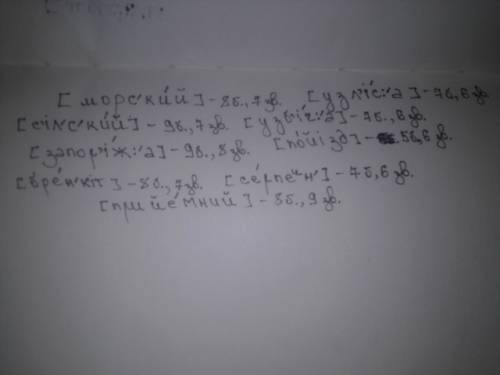 [морс׳ки́й] – 8б., 7зв. [узл׳іс׳:а] – 7б, 6зв.
[сіл׳с׳ки́й] – 9б., 7зв. [узб׳іч׳:а] – 7б., 6зв.
[запор׳іж׳:а] – 9б., 8зв. [по́йізд] – 5б, 6зв.
[бре́н׳кіт] – 8б., 7зв. [се́рпеᶦн׳] – 7б, 6зв.
[прийе́мний] – 8б., 9зв.